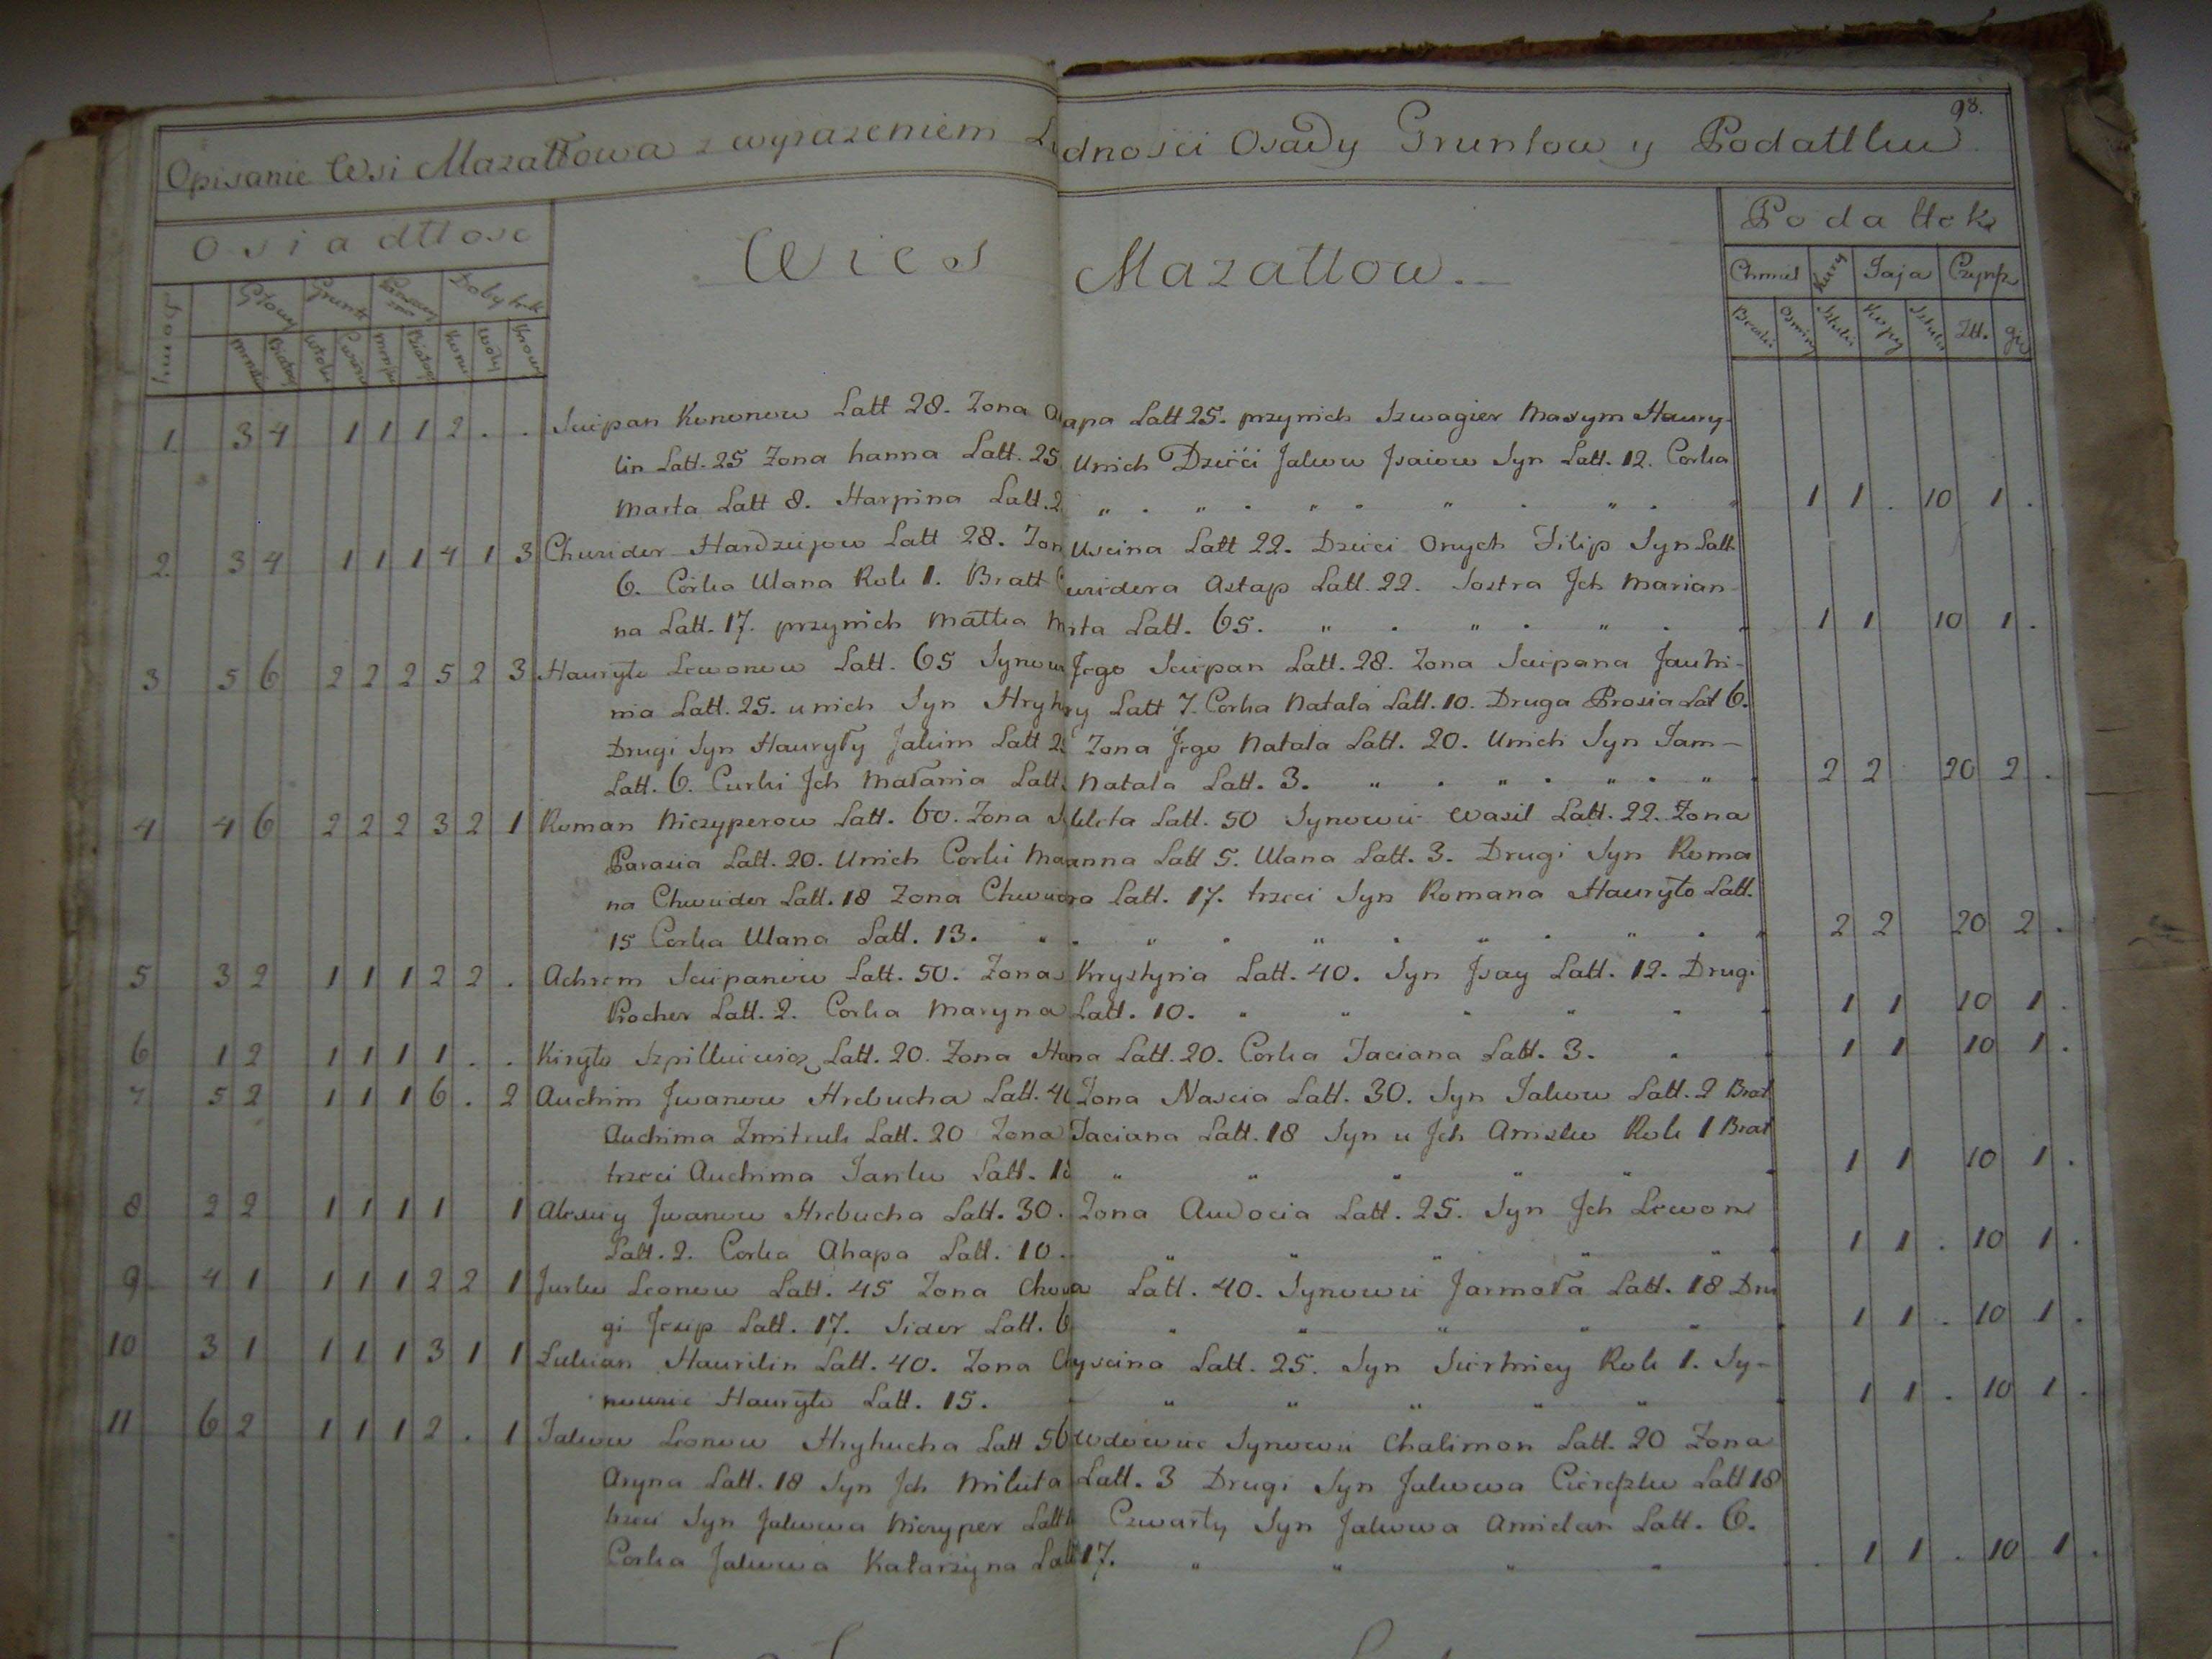 98.
Opisanie Wsi Mazattowa z wyrazeniem Ludnosci Osady Gruntow y Podattku
Osiadttosc
Wies Mazattow.
Podattek
Głowy Grunta Dobytek
Chmiel Kury Jaja Czynsz
Domy Woły Krowy
Osminy Sztuki Kopy Sztuki Ztt. gr
1. 3 4 1 1 1 2 . . Sciepan Kononow Latt 28. Zona apa Latt 25. przynich Szwagier Maxym Haury-
lin Latt. 25 Zona hanna Latt. 25 Unich Dzieci Jakow Jsaiow Syn Latt. 12. Corka
Marta Latt 8. Harpina Latt. 2 1 1 . 10 1 .
2. 3 4 1 1 1 4 1 3 Chwieder Hardziejow Latt 28. Zon Uscina Latt 22. Dzieci Onych Filip Syn Latt
6. Corka Ulana Rok 1. Bratt Chwiedera Astap Latt. 22. Sostra Jch Marian-
na Latt. 17. przynich Matka Marta Latt. 65. 1 1 10 1 .
3 5 6 2 2 2 5 2 3 Hauryło Lewonow Latt. 65 Synow Jego Sciepan Latt. 28. Zona Sciepana Jauhi-
nia Latt. 25. unich Syn Hryhory Latt 7. Corka Natala Latt. 10. Druga Prosia Lat 6.
Drugi Syn Hauryły Jakim Latt 2 Zona Jego Natala Latt. 20. Unich Syn Jam-
Latt. 6. Curki Jch Małania Latt. Natala Latt. 3. 2 2 20 2 .
4 4 6 2 2 2 3 2 1 Roman Niczyperow Latt. 60. Zona Latt. 50 Synowie Wasil Latt. 22. Zona
Parasia Latt. 20. Unich Corki Maranna Latt 5. Ulana Latt. 3. Drugi Syn Roma
na Chwieder Latt. 18 Zona Chwiedora Latt. 17. trzeci Syn Romana Hauryło Latt.
15 Corka Ulana Latt. 13. 2 2 20 2 .
5 3 2 1 1 1 2 2 . Achrem Sciepanow Latt. 50. Zona Krystyna Latt. 40. Syn Jsay Latt. 12. Drugi
Procher Latt. 2. Corka Maryna Latt. 10. 1 1 10 1 .
6 1 2 1 1 1 1 . . Kiryło Szpilkiewicz Latt. 20. Zona Hana Latt. 20. Corka Taciana Latt. 3. 1 1 10 1 .
7 5 2 1 1 1 6 . 2 Auchim Jwanow Hrebucha Latt. 40 Zona Nascia Latt. 30. Syn Jakow Latt. 2 Brat
Auchima Zmitruk Latt. 20 Zona Taciana Latt. 18 Syn u Jch Anisko Rok 1 Brat
trzeci Auchima Janko Latt. 18 1 1 10 1 .
8 2 2 1 1 1 1 1 Alexiey Jwanow Hrebucha Latt. 30. Zona Audocia Latt. 25. Syn Jch Lewon
Latt. 2. Corka Ahapa Latt. 10. 1 1 . 10 1 .
9 4 1 1 1 1 2 2 1 Jurko Leonow Latt. 45 Zona Latt. 40. Synowie Jarmoła Latt. 18 Dru
gi Jozip Latt. 17. Sidor Latt. 6 1 1 . 10 1 .
10 3 1 1 1 1 3 1 1 Łukian Haurilin Latt. 40. Zona Chryscina Latt. 25. Syn Sierhiey Rok 1. Sy-
nowiec Hauryło Latt. 15. 1 1 . 10 1 .
11 6 2 1 1 1 2 . 1 Jakow Leonow Hryhucha Latt 50 wdowiec Synowie Chalimon Latt. 20 Zona
Aryna Latt. 18 Syn Jch Mikita Latt. 3 Drugi Syn Jakowa Cierezko Latt 18
trzeci Syn Jakowa Niczyper Latt Czwarty Syn Jakowa Amielan Latt. 6.
Corka Jakowa Katarzyna Latt 17. 1 1 . 10 1 .